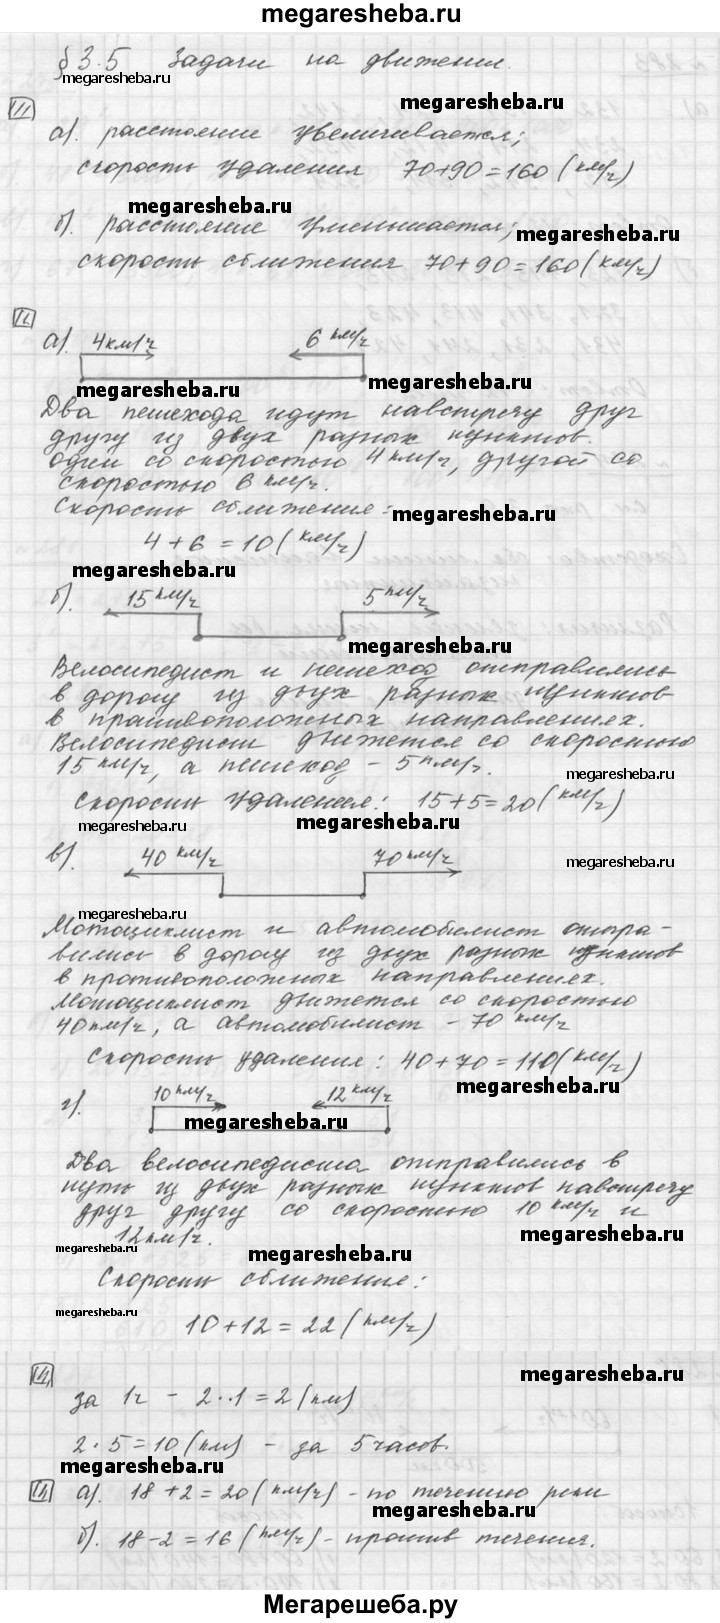 megaresheba.ru
§ 3.5 Задачи на движение.
megaresheba.ru
megaresheba.ru
а). расстояние увеличивается;
скорость удаления 70+90=160 (км/ч)
megaresheba.ru
б). расстояние уменьшается;
megaresheba.ru
скорость сближения 70+90=160 (км/ч)
а). 4км/ч 6 км/ч
megaresheba.ru megaresheba.ru
Два пешехода идут навстречу друг
другу из двух разных пунктов.
один со скоростью 4 км/ч, другой со
скоростью 6 км/ч.
Скорость сближения:
megaresheba.ru
4+6=10 (км/ч)
megaresheba.ru
б). 15 км/ч 5 км/ч
megaresheba.ru
Велосипедист и пешеход отправились
в дорогу из двух разных пунктов
в противоположных направлениях.
Велосипедист движется со скоростью
15 км/ч, а пешеход - 5 км/ч.
megaresheba.ru
Скорость удаления: 15+5=20 (км/ч)
megaresheba.ru megaresheba.ru
в). 40 км/ч 70 км/ч
megaresheba.ru
megaresheba.ru
Мотоциклист и автомобилист отпра-
вились в дорогу из двух разных пунктов
в противоположных направлениях.
Мотоциклист движется со скоростью
40 км/ч, а автомобилист - 70 км/ч
Скорость удаления: 40+70=110 (км/ч)
megaresheba.ru
г). 10 км/ч 12 км/ч
megaresheba.ru
Два велосипедиста отправились в
путь из двух разных пунктов навстречу
друг другу со скоростью 10 км/ч и
12 км/ч.
megaresheba.ru
megaresheba.ru megaresheba.ru
Скорость сближения:
megaresheba.ru
10+12=22 (км/ч)
megaresheba.ru
за 1ч - 2·1=2 (км)
2·5=10 (км) - за 5 часов.
megaresheba.ru
а). 18+2=20 (км/ч) - по течению реки
megaresheba.ru
б). 18-2=16 (км/ч) - против течения.
Мегарешеба.ру